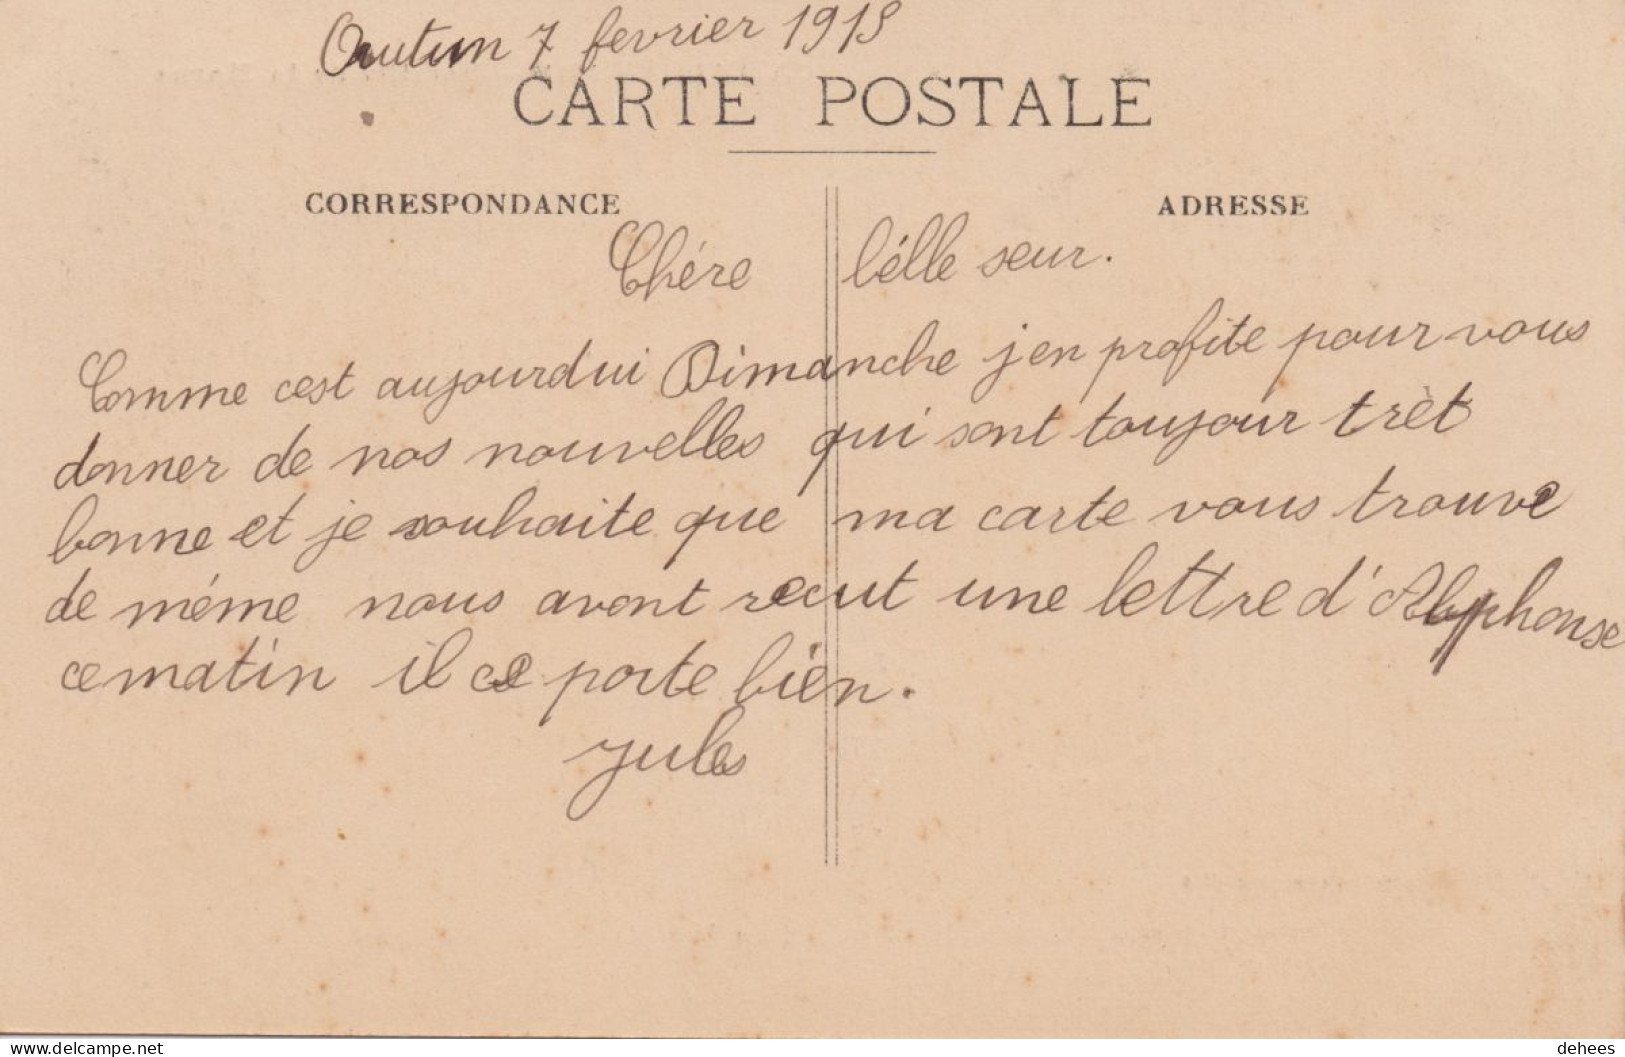 Autun 7 fevrier 1915
CARTE POSTALE
CORRESPONDANCE
ADRESSE
Chére bélle seur.
Comme cest aujourdui Dimanche j'en profite pour vous
donner de nos nouvelles qui sont toujour trèt
bonne et je souhaite que ma carte vous trouve
de méme nous avont recut une lettre d'Alphonse
ce matin il ce porte bien.
Jules
www.delcampe.net
dehees